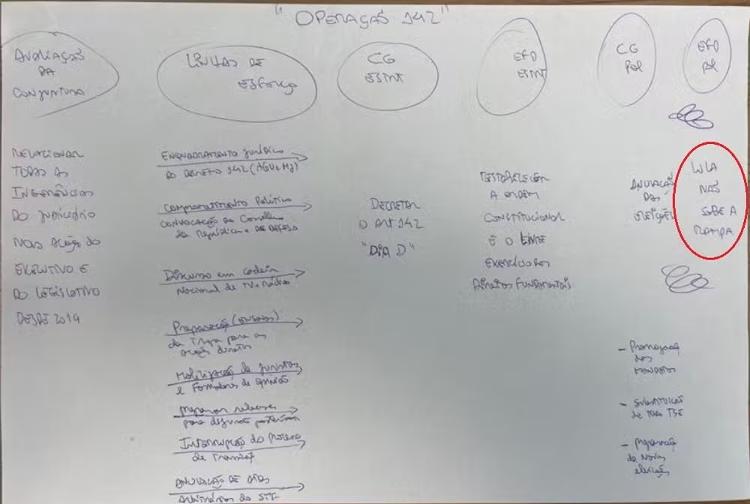 "OPERAÇÃO 142"
AVALIAÇÃO
DA
CONJUNTURA
LINHAS DE
ESFORÇO
CG
ESINT
EFD
ESINT
CG
POL
EFD
POL
RELACIONAR
TODAS AS
INGERÊNCIAS
DO JUDICIÁRIO
NAS AÇÃO DO
EXECUTIVO E
DO LEGISLATIVO
DESDE 2019
ENQUADRAMENTO JURÍDICO
DO DECRETO 142 (AGU e MJ)
COMPROMETIMENTO POLÍTICO
CONVOCAÇÃO do Conselho
da República e DE DEFESA
Discurso em cadeia
Nacional de TV e Rádio
Preparação
da Tropa para as
ações diretas
Mobilização de juristas
e Formadores de opinião
Preparar
para
Interrupção do Processo
de Transição
ANULAÇÃO DE ATOS
ARBITRÁRIOS DO STF
DECRETAR
O ART 142
"DIA D"
RESTABELECER
A ORDEM
CONSTITUCIONAL
E O
DIREITOS FUNDAMENTAIS
ANULAÇÃO
DAS
ELEIÇÕES
LULA
NÃO
SOBE A
RAMPA
- Prorrogação
dos
MANDATOS
- SUBSTITUIÇÃO
DE TODO TSE
- Preparação
de Novas
eleições